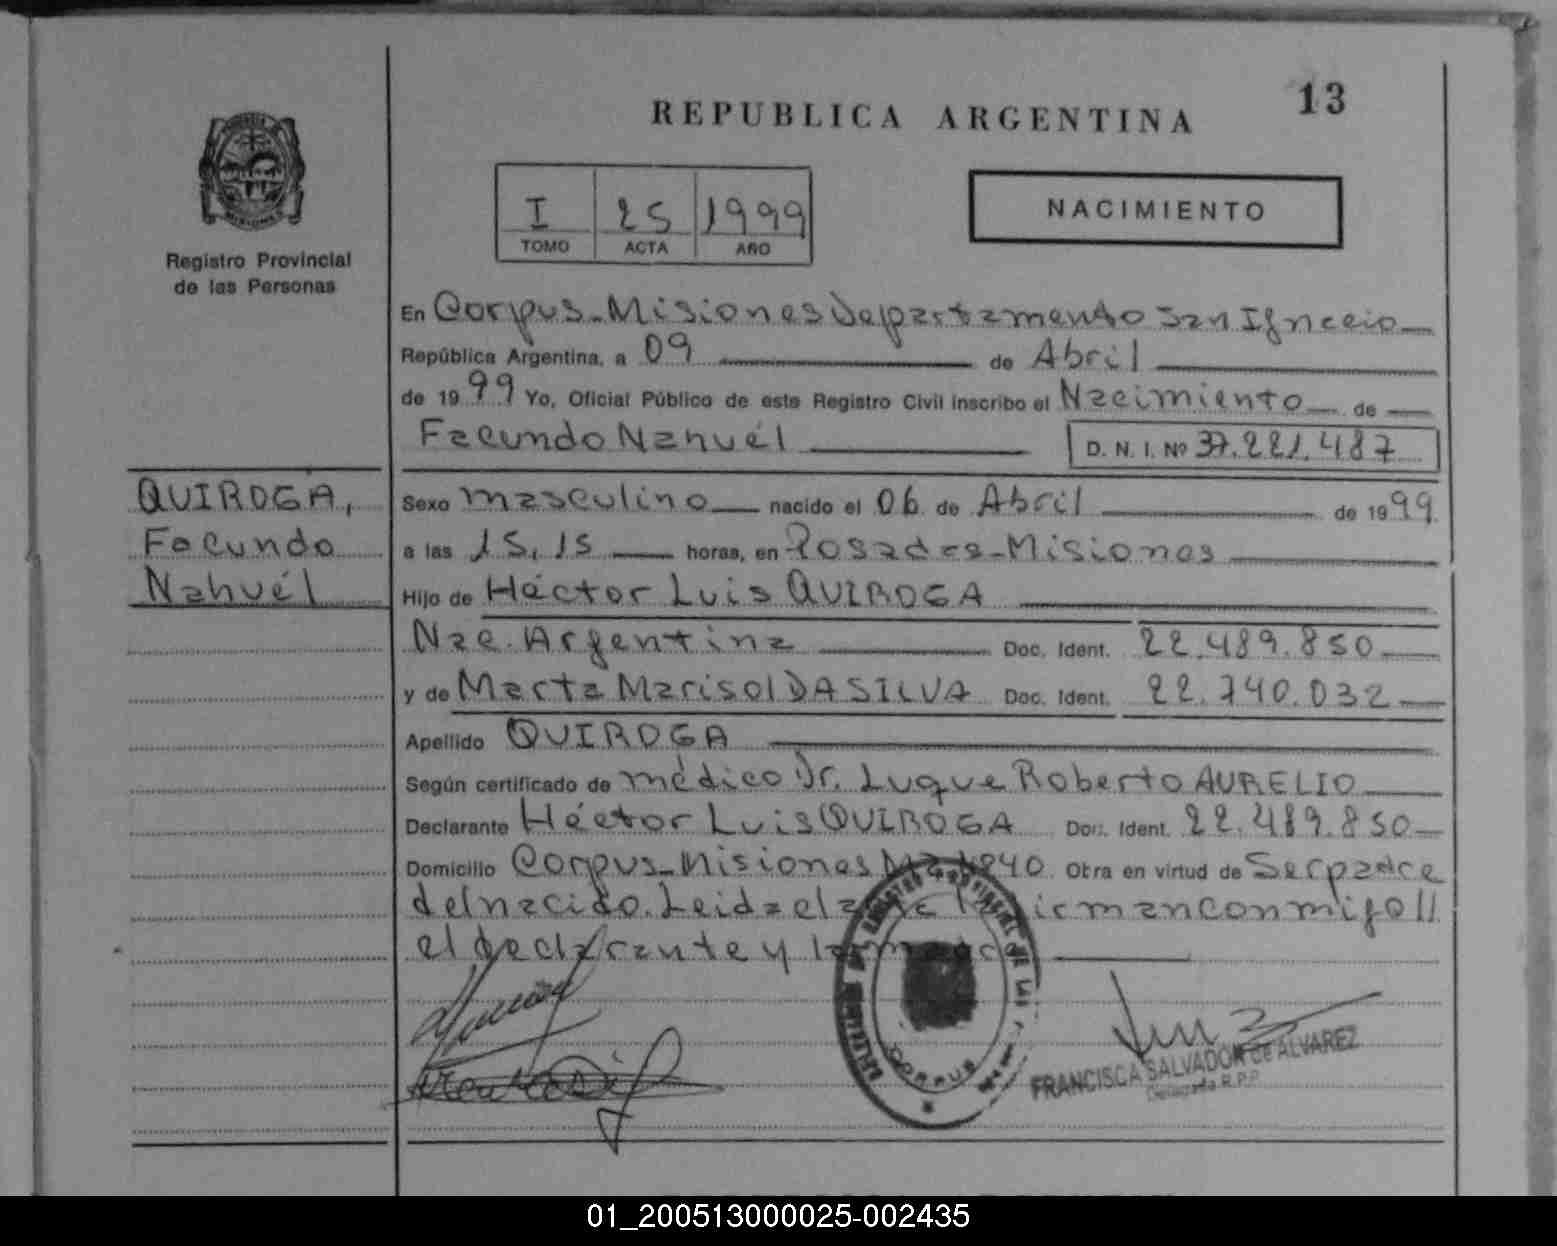 REPUBLICA ARGENTINA
13
I 25 1999
TOMO ACTA AÑO
NACIMIENTO
MISIONES
Registro Provincial
de las Personas
En Corpus - Misiones Departamento San Ignacio
República Argentina, a 09 de Abril
de 1999 Yo, Oficial Público de este Registro Civil inscribo el Nacimiento de
Facundo Nahuél D. N. I. Nº 37.221.487
QUIROGA,
Facundo
Nahuél
Sexo masculino nacido el 06 de Abril de 1999.
a las 15,15 horas, en Posadas - Misiones
Hijo de Héctor Luis QUIROGA
Nac. Argentina Doc. Ident. 22.489.850
y de Marta Marisol DA SILVA Doc. Ident. 22.740.032
Apellido QUIROGA
Según certificado de médico Dr. Luque Roberto AURELIO
Declarante Héctor Luis QUIROGA Doc. Ident. 22.489.850
Domicilio Corpus - Misiones Obra en virtud de Ser padre
del nacido. Leida el firman conmigo
el declarante y la madre
CORPUS
FRANCISCA SALVADOR de ALVAREZ
Delegada R.P.P.
01_200513000025-002435